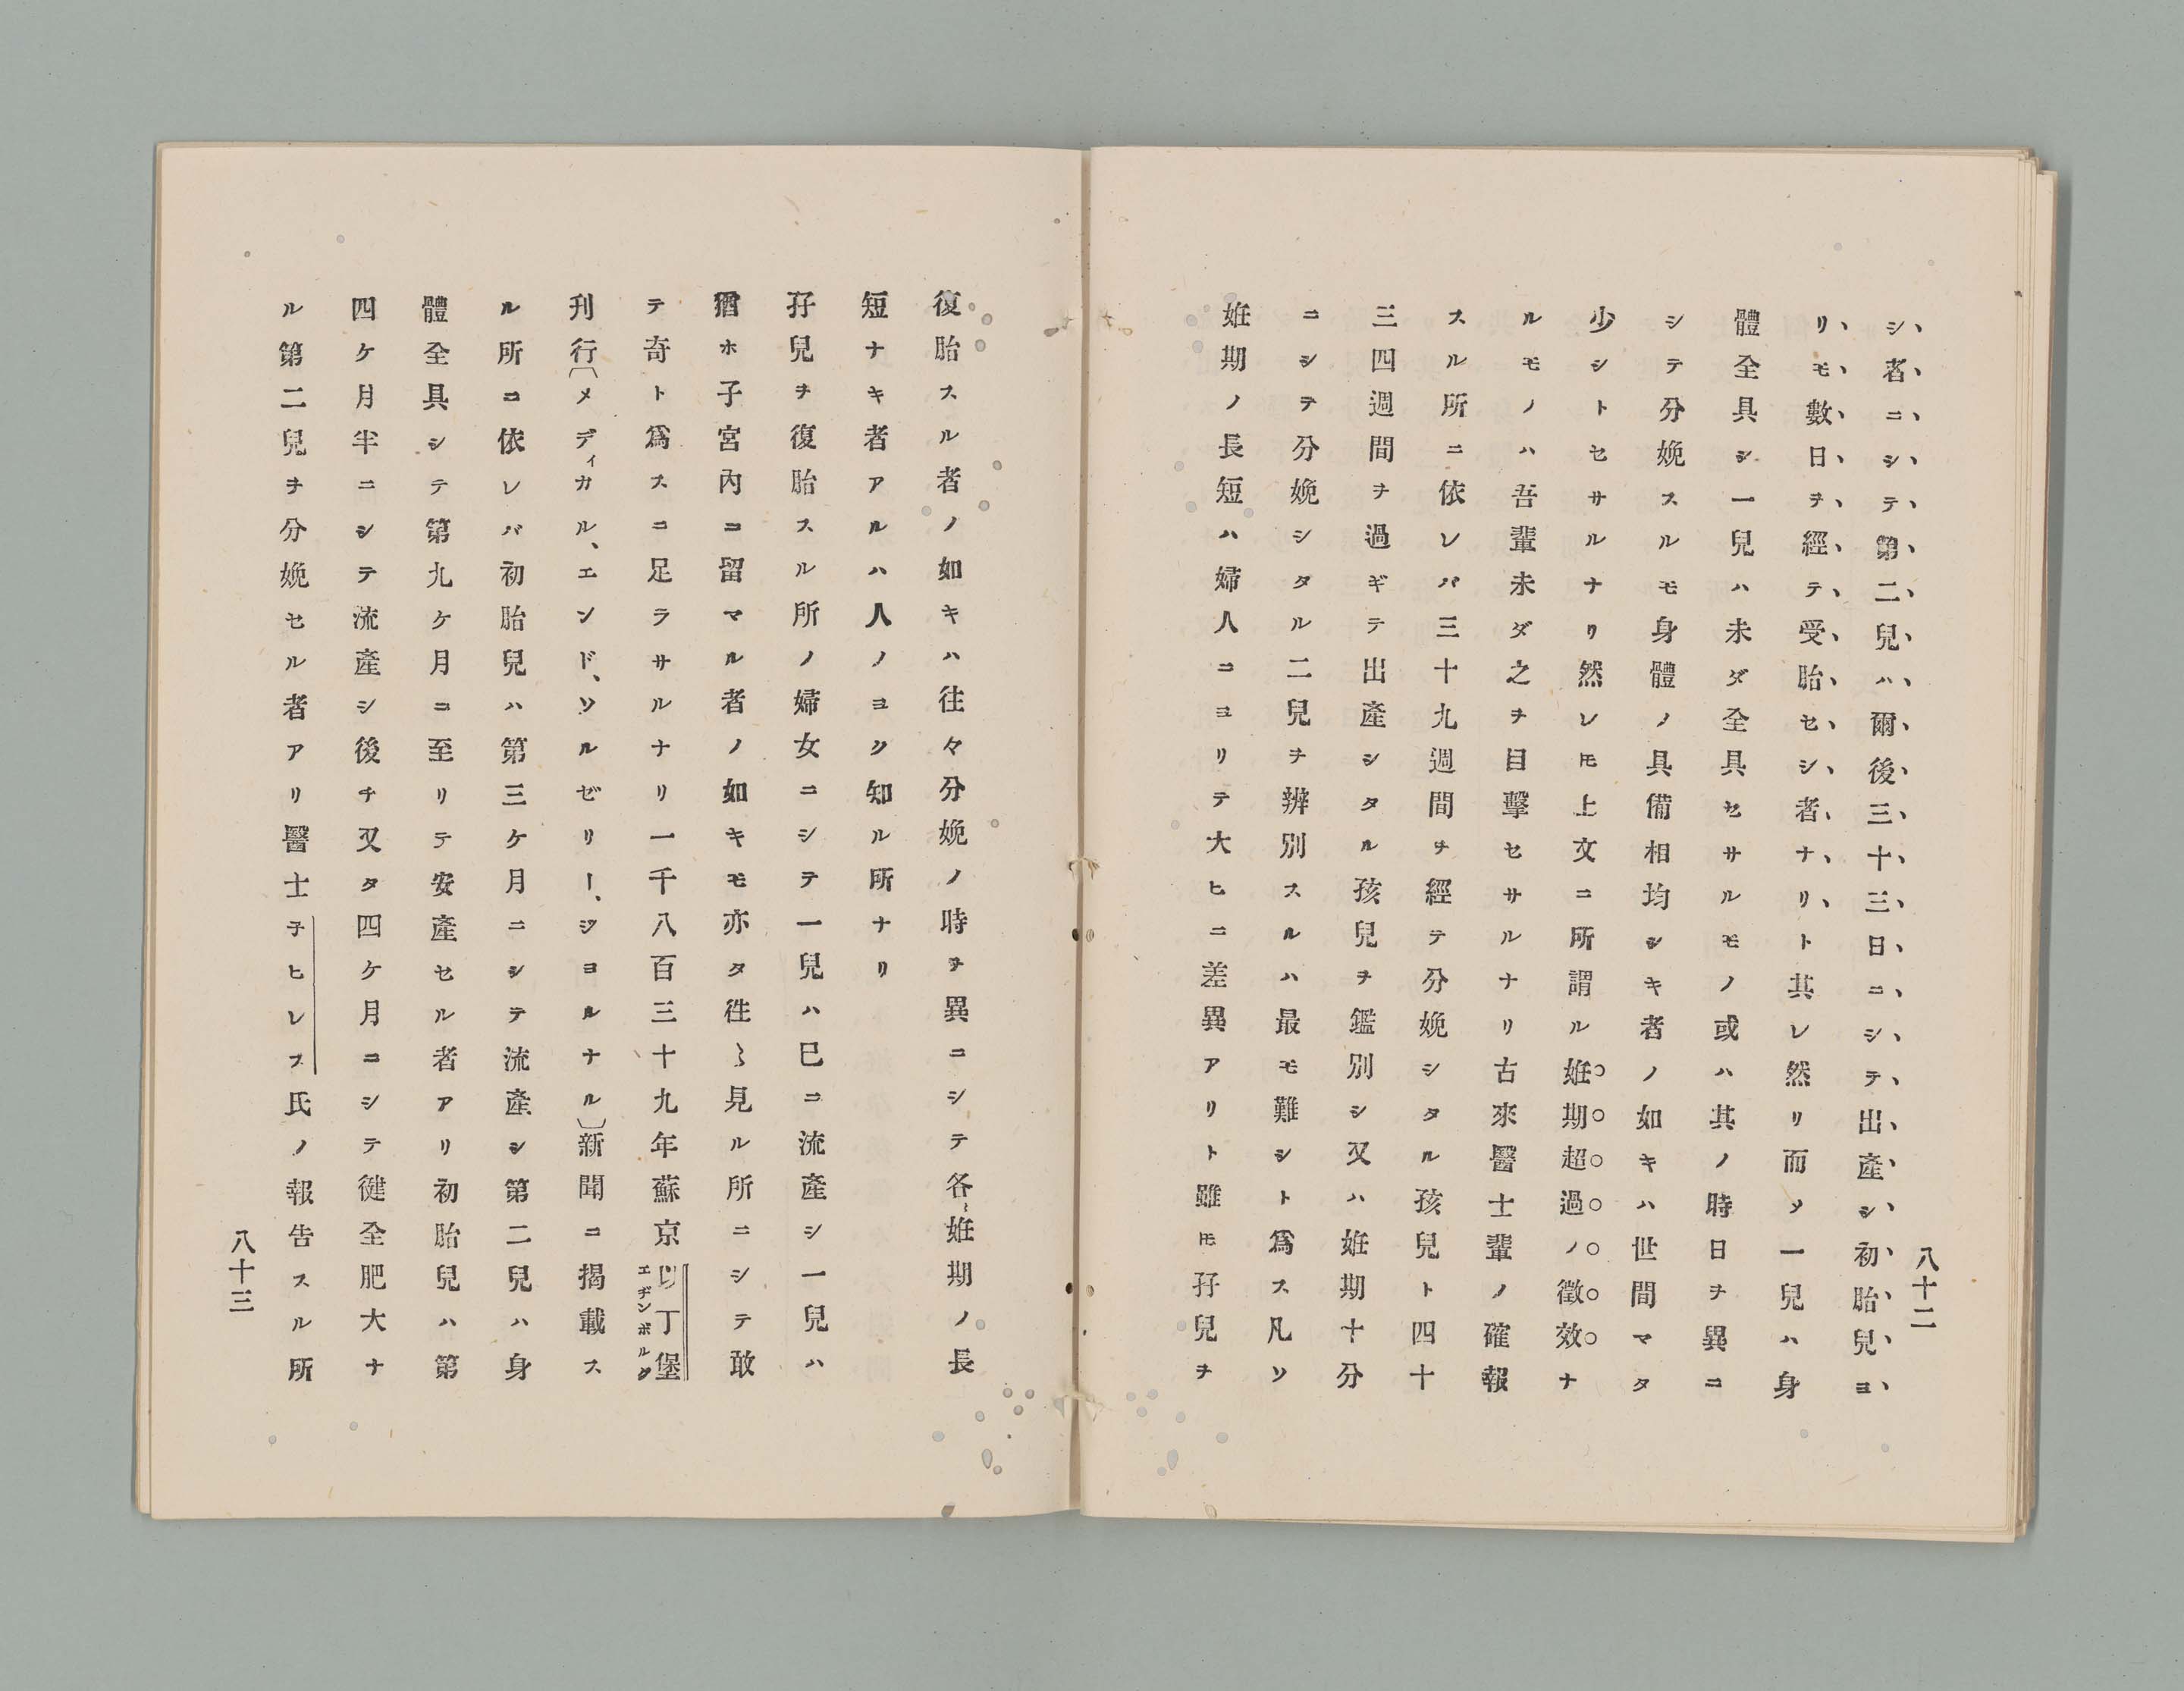 八十二
シ者ニシテ第二兒ハ爾後三十三日ニシテ出產シ初胎兒ヨ
リモ數日ヲ經テ受胎セシ者ナリト其レ然リ而メ一兒ハ身
體全具シ一兒ハ未ダ全具セサルモノ或ハ其ノ時日ヲ異コ
シテ分娩スルモ身體ノ具備相均シキ者ノ如キハ世間マタ
少シトセサルナリ然レ𪜈上文ニ所謂ル姙期超過ノ徵效ナ
ルモノハ吾輩未ダ之ヲ目擊セサルナリ古來醫士輩ノ確報
スル所ニ依レバ三十九週間ヲ經テ分娩シタル孩兒ト四十
三四週間ヲ過ギテ出產シタル孩兒ヲ鑑別シ又ハ姙期十分
ニシテ分娩シタル二兒ヲ辨別スルハ最モ難シト爲ス凡ソ
姙期ノ長短ハ婦人コヨリテ大ヒニ差異アリト雖𪜈孖兒ヲ
復胎スル者ノ如キハ往々分娩ノ時ヲ異コシテ各〻姙期ノ長
短ナキ者アルハ人ノヨク知ル所ナリ
孖兒ヲ復胎スル所ノ婦女ニシテ一兒ハ巳ニ流產シ一兒ハ
猶ホ子宮內コ留マル者ノ如キモ亦タ徃〻見ル所ニシテ敢
テ奇ト爲スコ足ラサルナリ一千八百三十九年蘇京以丁堡エヂンボルグ
刊行〔メディカル、エンド、ソルゼリー、ジヨルナル〕新聞コ揭載ス
ル所コ依レバ初胎兒ハ第三ケ月ニシテ流產シ第二兒ハ身
體全具シテ第九ケ月コ至リテ安產セル者アリ初胎兒ハ第
四ケ月半ニシテ流產シ後チ又タ四ケ月コシテ健全肥大ナ
ル第二兒ヲ分娩セル者アリ醫士チヒレス氏ノ報告スル所
八十三